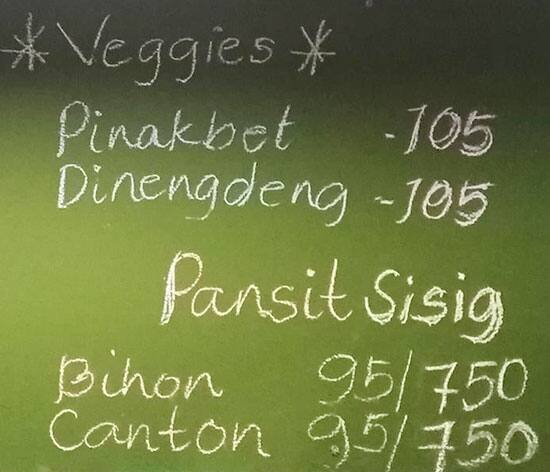 * Veggies *
Pinakbet -105
Dinengdeng -105
Pansit Sisig
Bihon 95/750
Canton 95/750